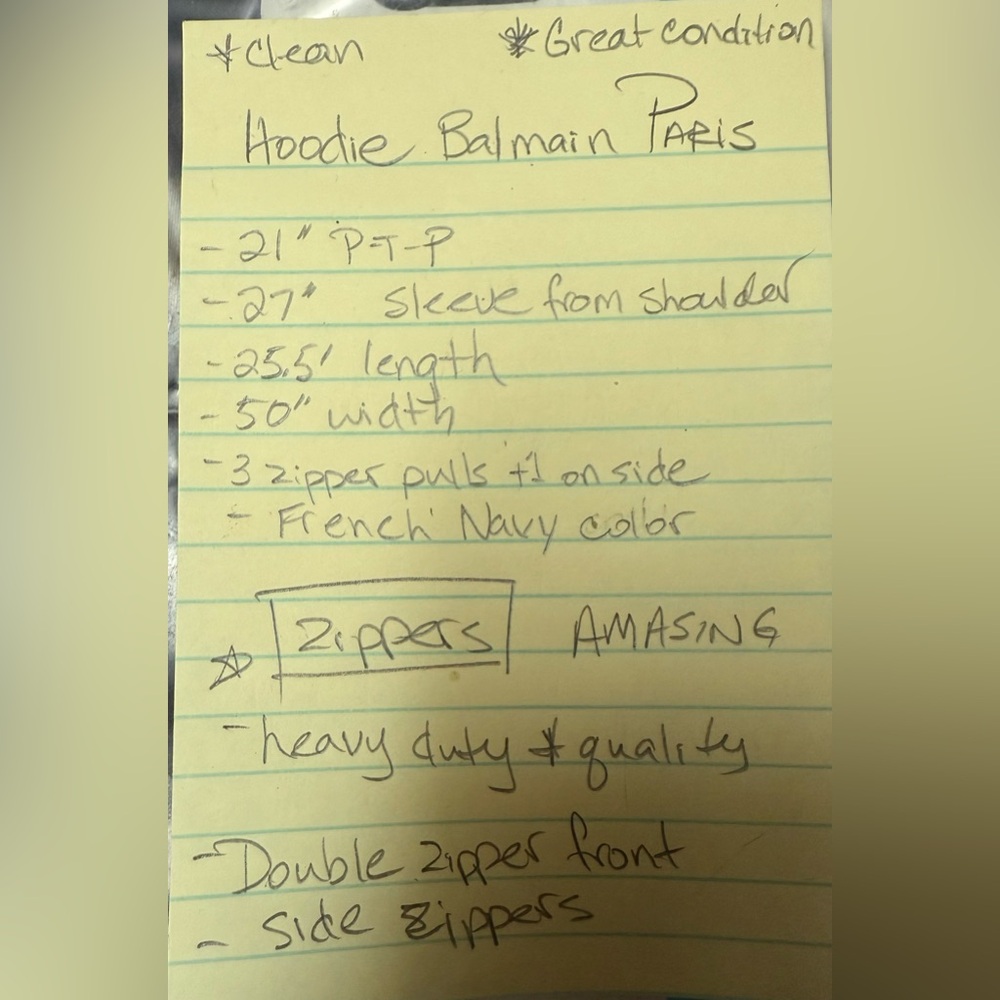 * Clean * Great condition
Hoodie Balmain PARIS
- 21" P-T-P
- 27" sleeve from shoulder
- 25.5' length
- 50" width
- 3 zipper pulls +1 on side
- French Navy color
Zippers AMASING
- heavy duty & quality
- Double zipper front
- side zippers